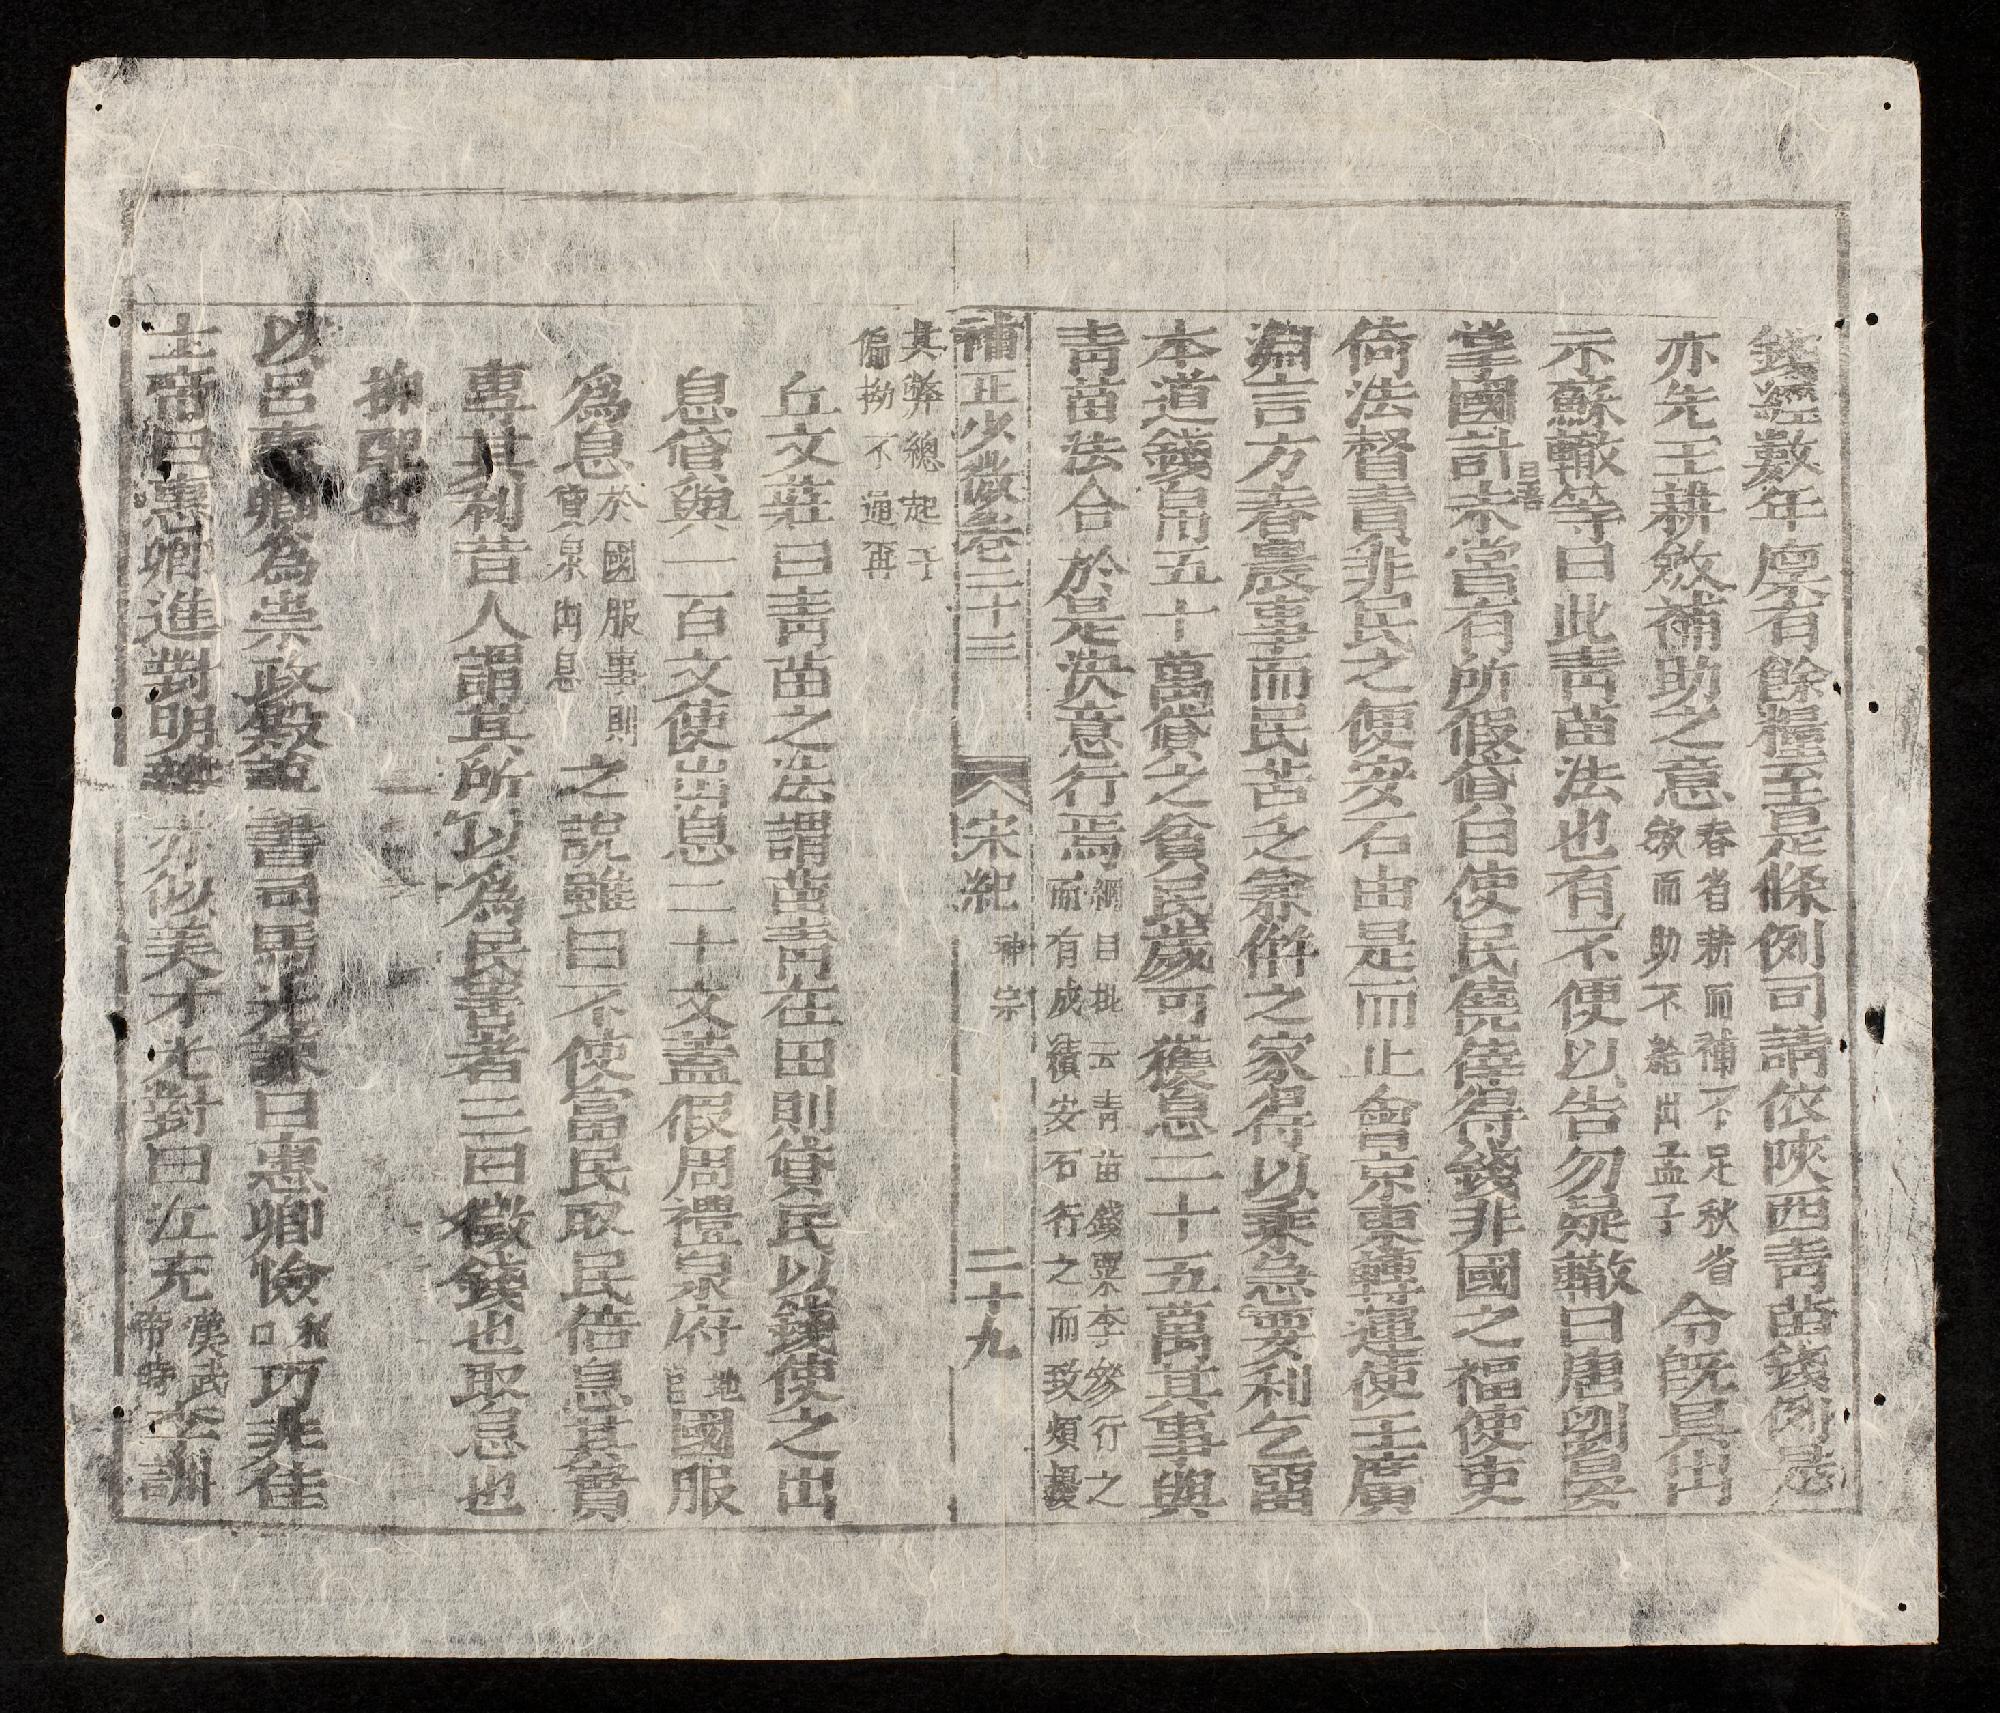 錢經數年廩有餘糧至是條例司請依陜西靑苗錢例是
亦先王耕斂補助之意春省耕而補不足秋省斂而助不給出孟子令旣具出
示蘇轍等曰此靑苗法也有不便以告勿疑轍曰唐劉晏
掌國計未嘗有所假貸自晏曰使民僥倖得錢非國之福使吏
倚法督責非民之便安石由是而止會京東轉運使王廣
淵言方春農事而民苦之兼倂之家得以乘急要利乞留
本道錢帛五十萬貸之貧民歲可獲息二十五萬其事與
靑苗法合於是決意行焉綱目批云靑苗錢粟李參行之而有成績安石行之而致煩擾
補正少微卷二十三 宋紀 神宗 二十九
其弊總起于偏拗不通再
丘文莊曰靑苗之法謂苗靑在田則貸民以錢使之出
息貸與一百文使出息二十文蓋假周禮泉府地官國服
爲息於國服事則貸泉出息之說雖曰不使富民取民倍息其實
專其利昔人謂其所以爲民害者三曰徵錢也取息也
抑配也
以呂惠卿爲崇政殿說書司馬光諫曰惠卿憸利口巧非佳
士帝曰惠卿進對明辨亦似美才光對曰江充漢武帝時李訓